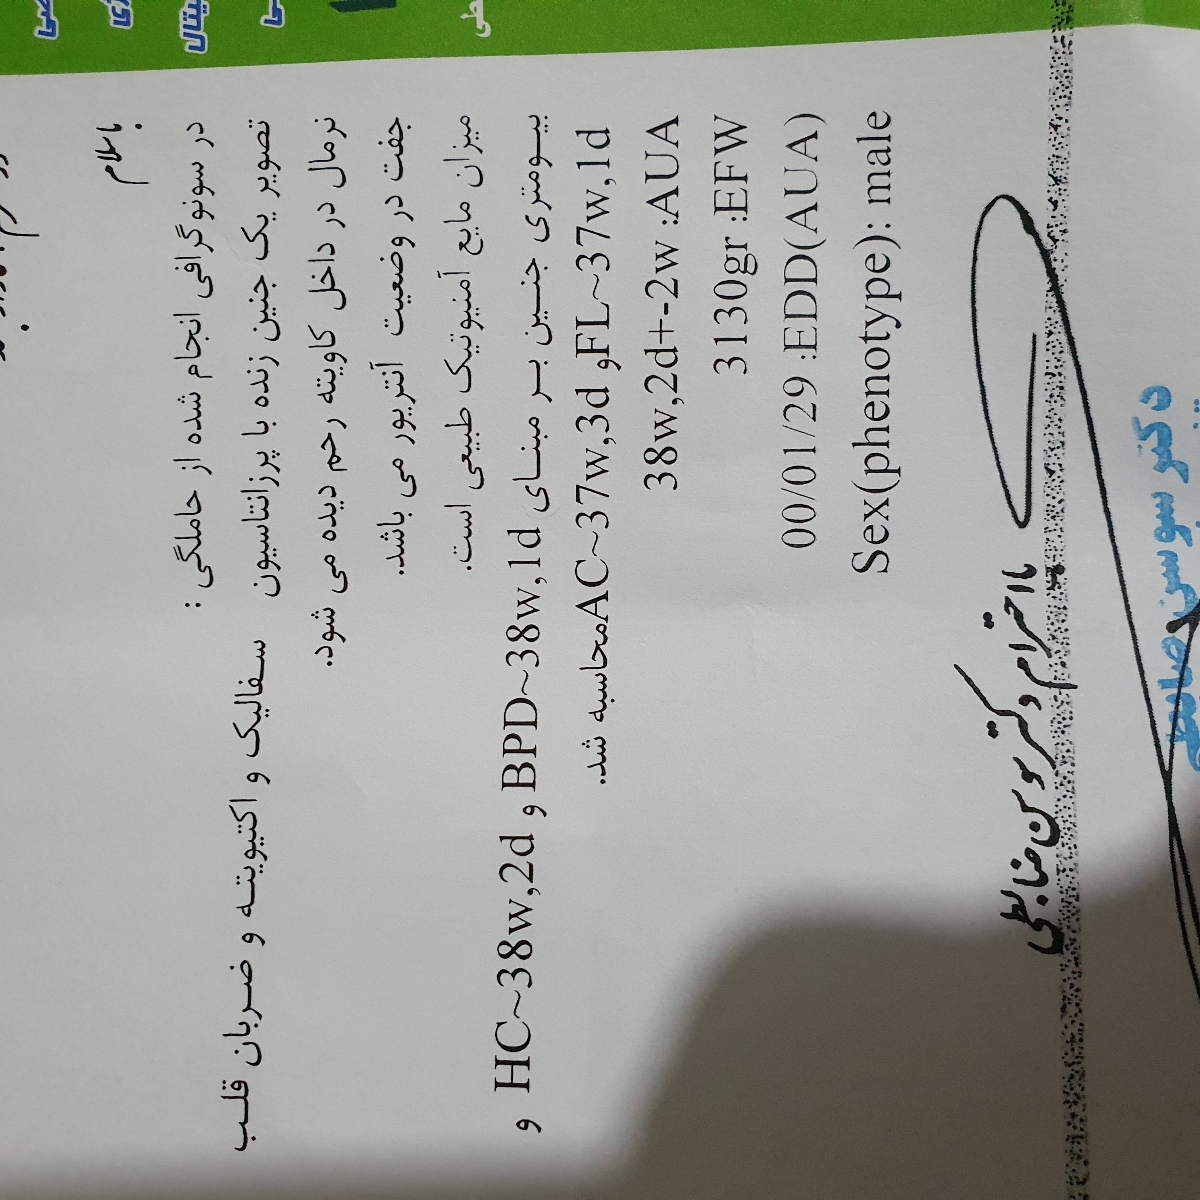 با سلام
در سونوگرافی انجام شده از حاملگی :
تصویر یک جنین زنده با پرزانتاسیون سفالیک و اکتیویته و ضربان قلب
نرمال در داخل کاویته رحم دیده می شود.
جفت در وضعیت آنتریور می باشد.
میزان مایع آمنیوتیک طبیعی است.
بیومتری جنین بر مبنای BPD~38w,1d و HC~38w,2d و
FL~37w,1d و AC~37w,3d محاسبه شد.
38w,2d+-2w :AUA
3130gr :EFW
00/01/29 :EDD(AUA)
Sex(phenotype): male
با احترام دکتر سوسن ضابطی
دکتر سوسن ضابطی